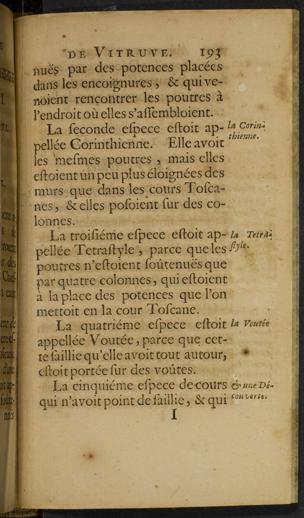 DE VITRUVE. 193
nuës par des potences placées
dans les encoignures, & qui ve-
noient rencontrer les poutres à
l'endroit où elles s'assembloient.
La seconde espece estoit ap-
la Corin-
thienne.
pellée Corinthienne. Elle avoit
les mesmes poutres, mais elles
estoient un peu plus éloignées des
murs que dans les cours Tosca-
nes, & elles posoient sur des co-
lonnes.
La troisiéme espece estoit ap-
la Tetra-
style.
pellée Tetrastyle, parce que les
poutres n'estoient soûtenuës que
par quatre colonnes, qui estoient
à la place des potences que l'on
mettoit en la cour Toscane.
La quatriéme espece estoit
la Voutée
appellée Voutée, parce que cet-
te saillie qu'elle avoit tout autour,
estoit portée sur des voûtes.
La cinquiéme espece de cours
& une Dé-
couverte.
qui n'avoit point de saillie, & qui
I